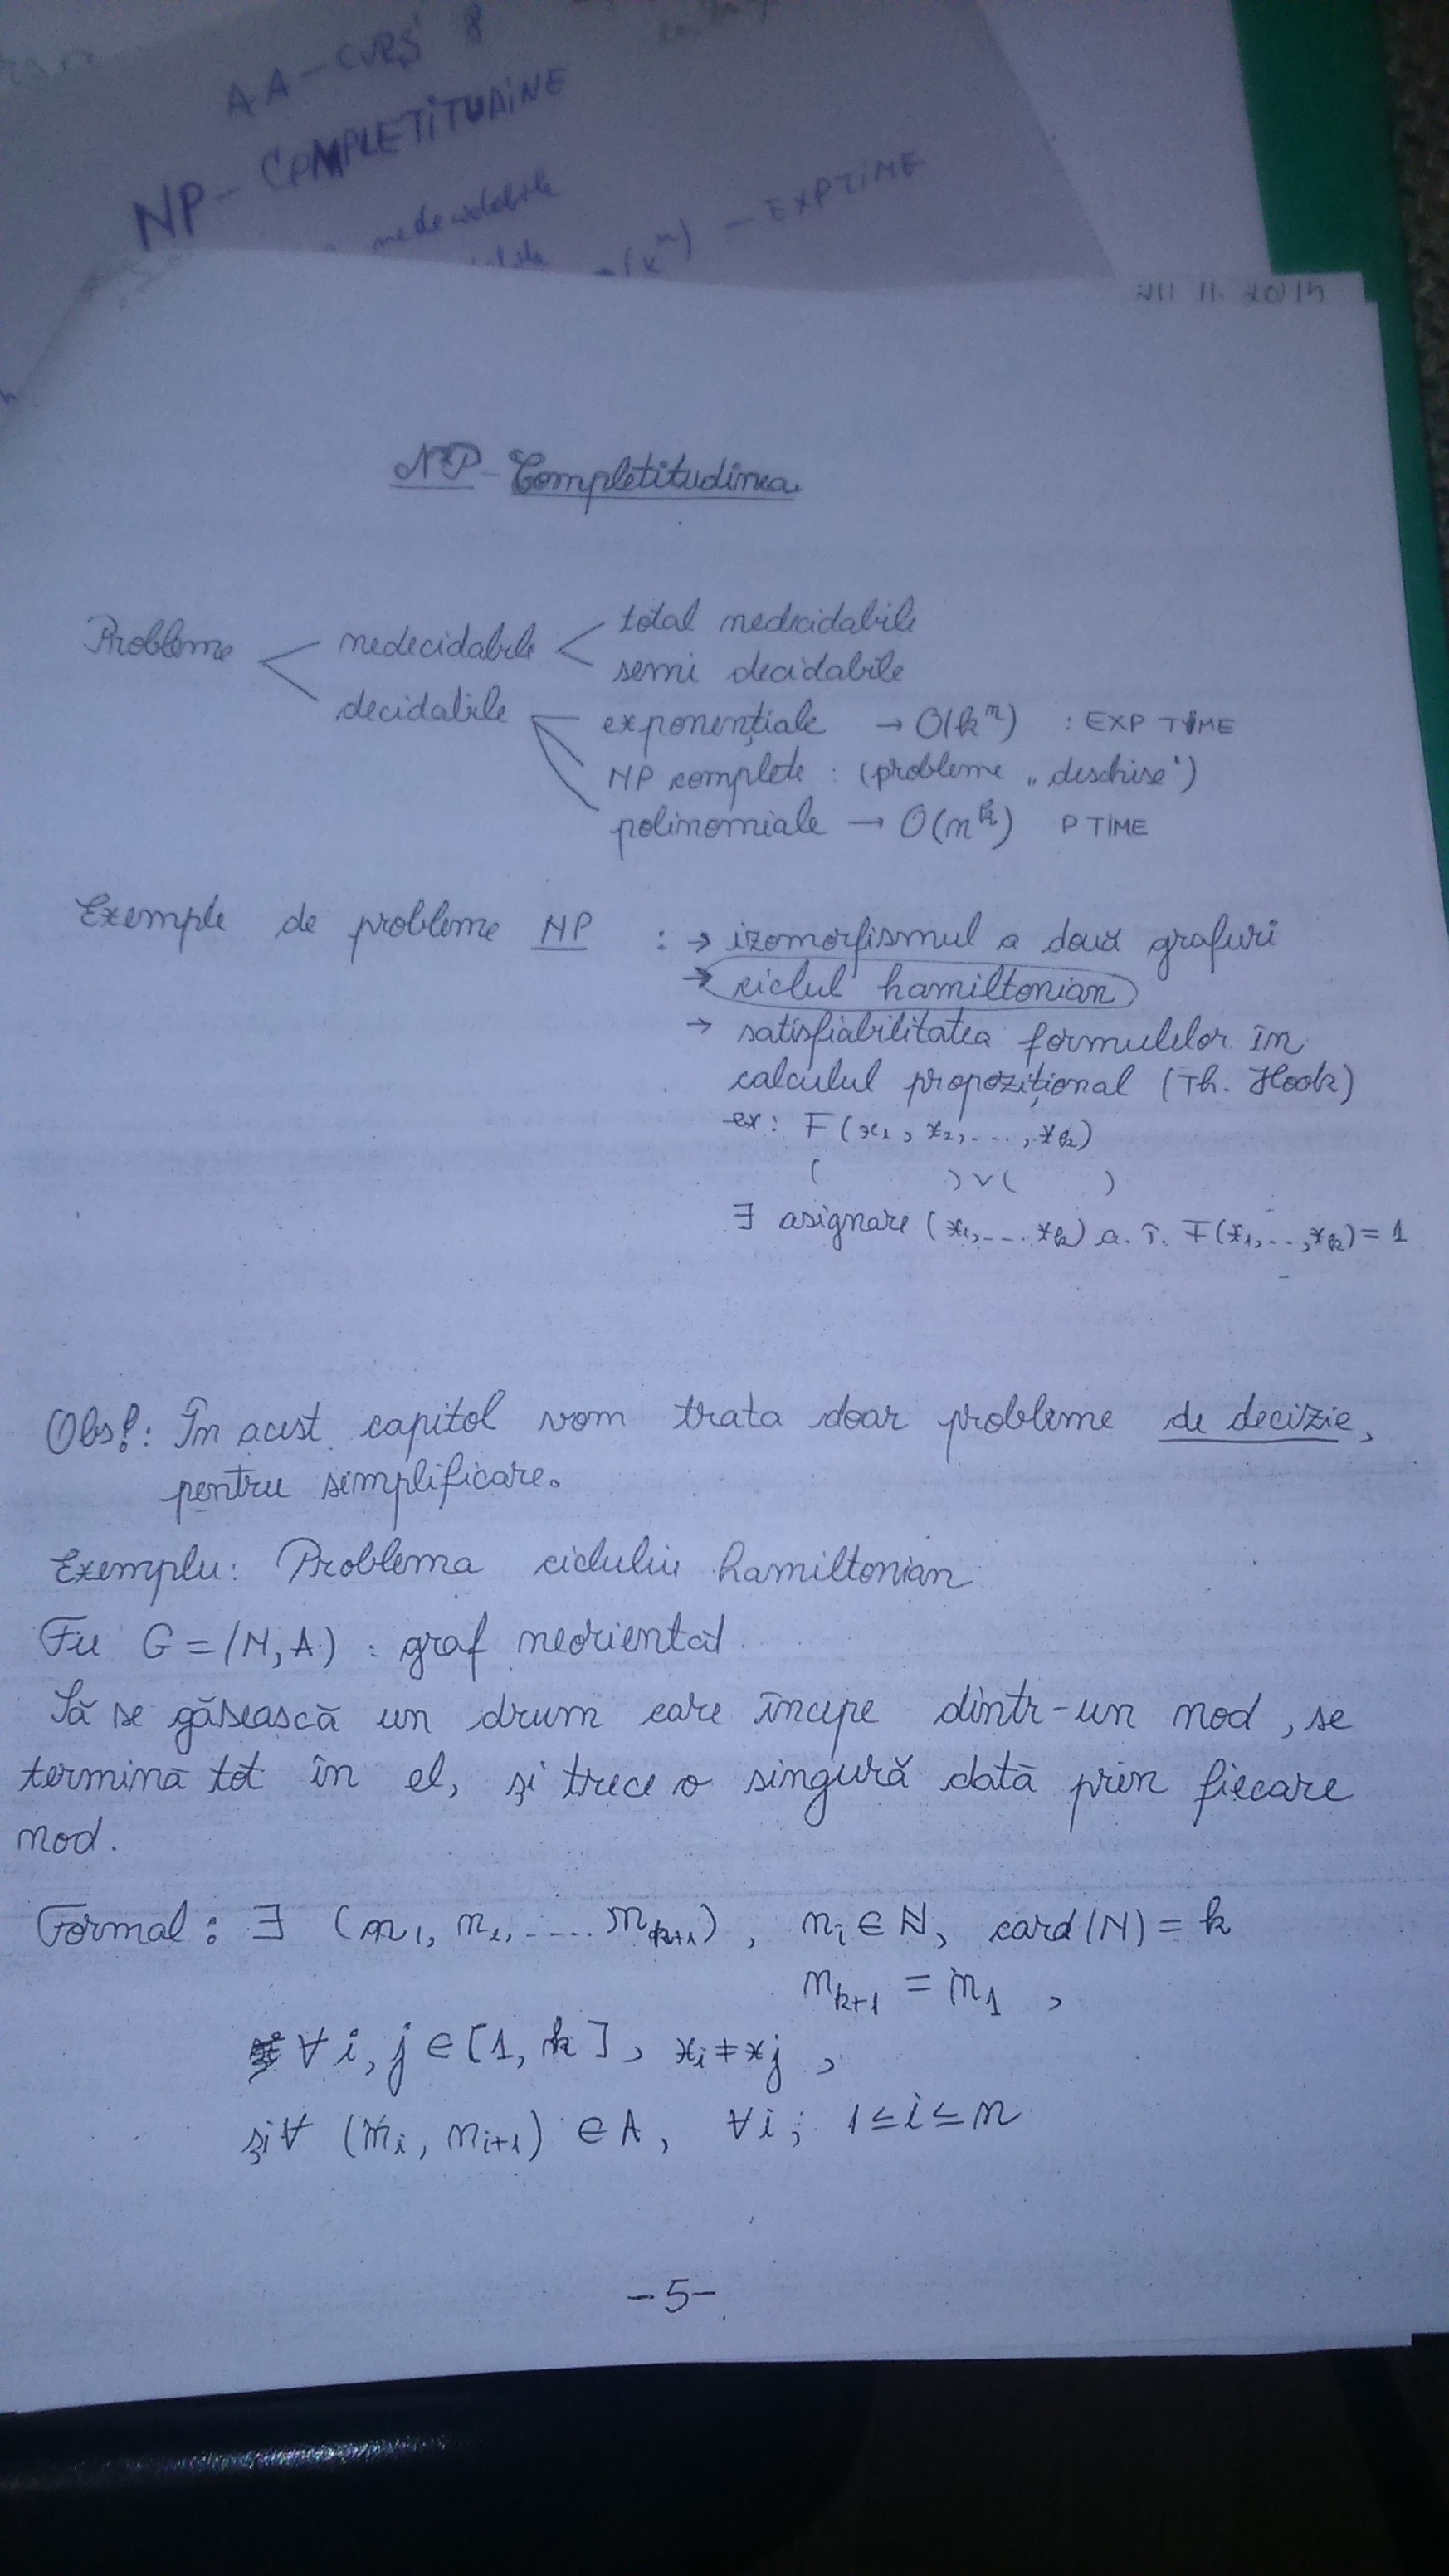 AA - CURS 8
NP - COMPLETITUDINE
nedecidabile
(k^n) - EXPTIME
NP - Completitudinea
Probleme < nedecidabile < total nedecidabile
semi decidabile
decidabile exponențiale → O(k^n) : EXP TIME
NP complete : (probleme „deschise")
polinomiale → O(n^k) P TIME
Exemple de probleme NP : → izomorfismul a două grafuri
→ ciclul hamiltonian
→ satisfiabilitatea formulelor în
calculul propozițional (Th. Hook)
ex: F(x1, x2, ..., xk)
( ) ∨ ( )
∃ asignare (x1, ... xk) a. î. F(x1, .., xk) = 1
Obs!: În acest capitol vom trata doar probleme de decizie,
pentru simplificare.
Exemplu: Problema ciclului hamiltonian
Fie G = (N, A) : graf neorientat
Să se găsească un drum care începe dintr-un nod, se
termină tot în el, și trece o singură dată prin fiecare
nod.
Formal: ∃ (n1, n2, ..... nk+1), ni ∈ N, card(N) = k
nk+1 = n1 ,
∀ i, j ∈ [1, k], xi ≠ xj ,
și ∀ (ni, ni+1) ∈ A, ∀i; 1 ≤ i ≤ n
- 5 -